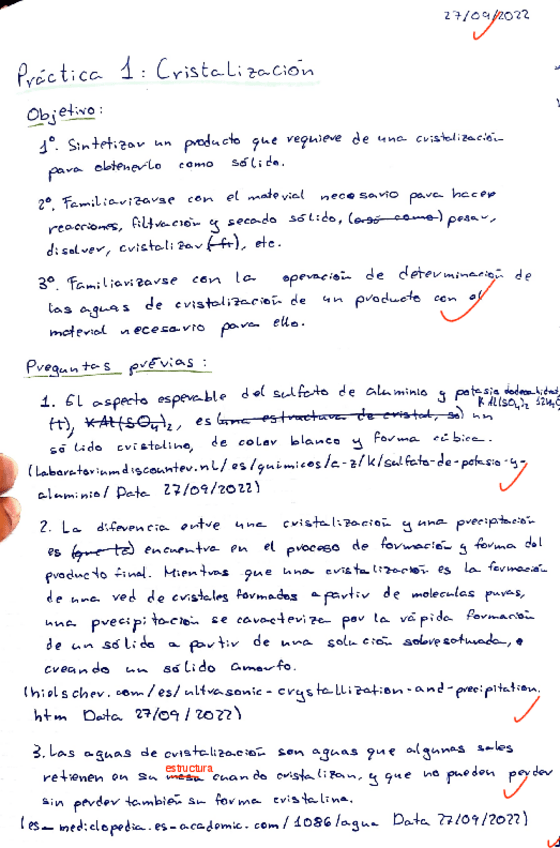 27/09/2022
Práctica 1: Cristalización
Objetivo:
1º. Sintetizar un producto que requiere de una cristalización
para obtenerlo como sólido.
2º. Familiarizarse con el material necesario para hacer
reacciones, filtración y secado sólido, (así como) pesar,
disolver, cristalizar (fr), etc.
3º. Familiarizarse con la operación de determinación de
las aguas de cristalización de un producto con el
material necesario para ello.
Preguntas prévias:
1. El aspecto esperable del sulfato de aluminio y potasio
KAl(SO₄)₂ 12H₂O
(t), KAl(SO₄)₂, es (una estructura de cristal, so) un
sólido cristalino, de color blanco y forma cúbica.
(laboratoriumdiscounter.nl/es/quimicos/a-z/k/sulfato-de-potasio-y-
aluminio/ Data 27/09/2022)
2. La diferencia entre una cristalización y una precipitación
es (que la) encuentra en el proceso de formación y forma del
producto final. Mientras que una cristalización es la formación
de una red de cristales formados a partir de moleculas puras,
una precipitación se caracteriza por la rápida formación
de un sólido a partir de una solución sobresaturada,
creando un sólido amorfo.
(hielscher.com/es/ultrasonic-crystallization-and-precipitation.
htm Data 27/09/2022)
3. Las aguas de cristalización son aguas que algunas sales
estructura
retienen en su mesa cuando cristalizan, y que no pueden perder
sin perder también su forma cristalina.
(es_mediclopedia.es-academic.com/1086/agua Data 27/09/2022)